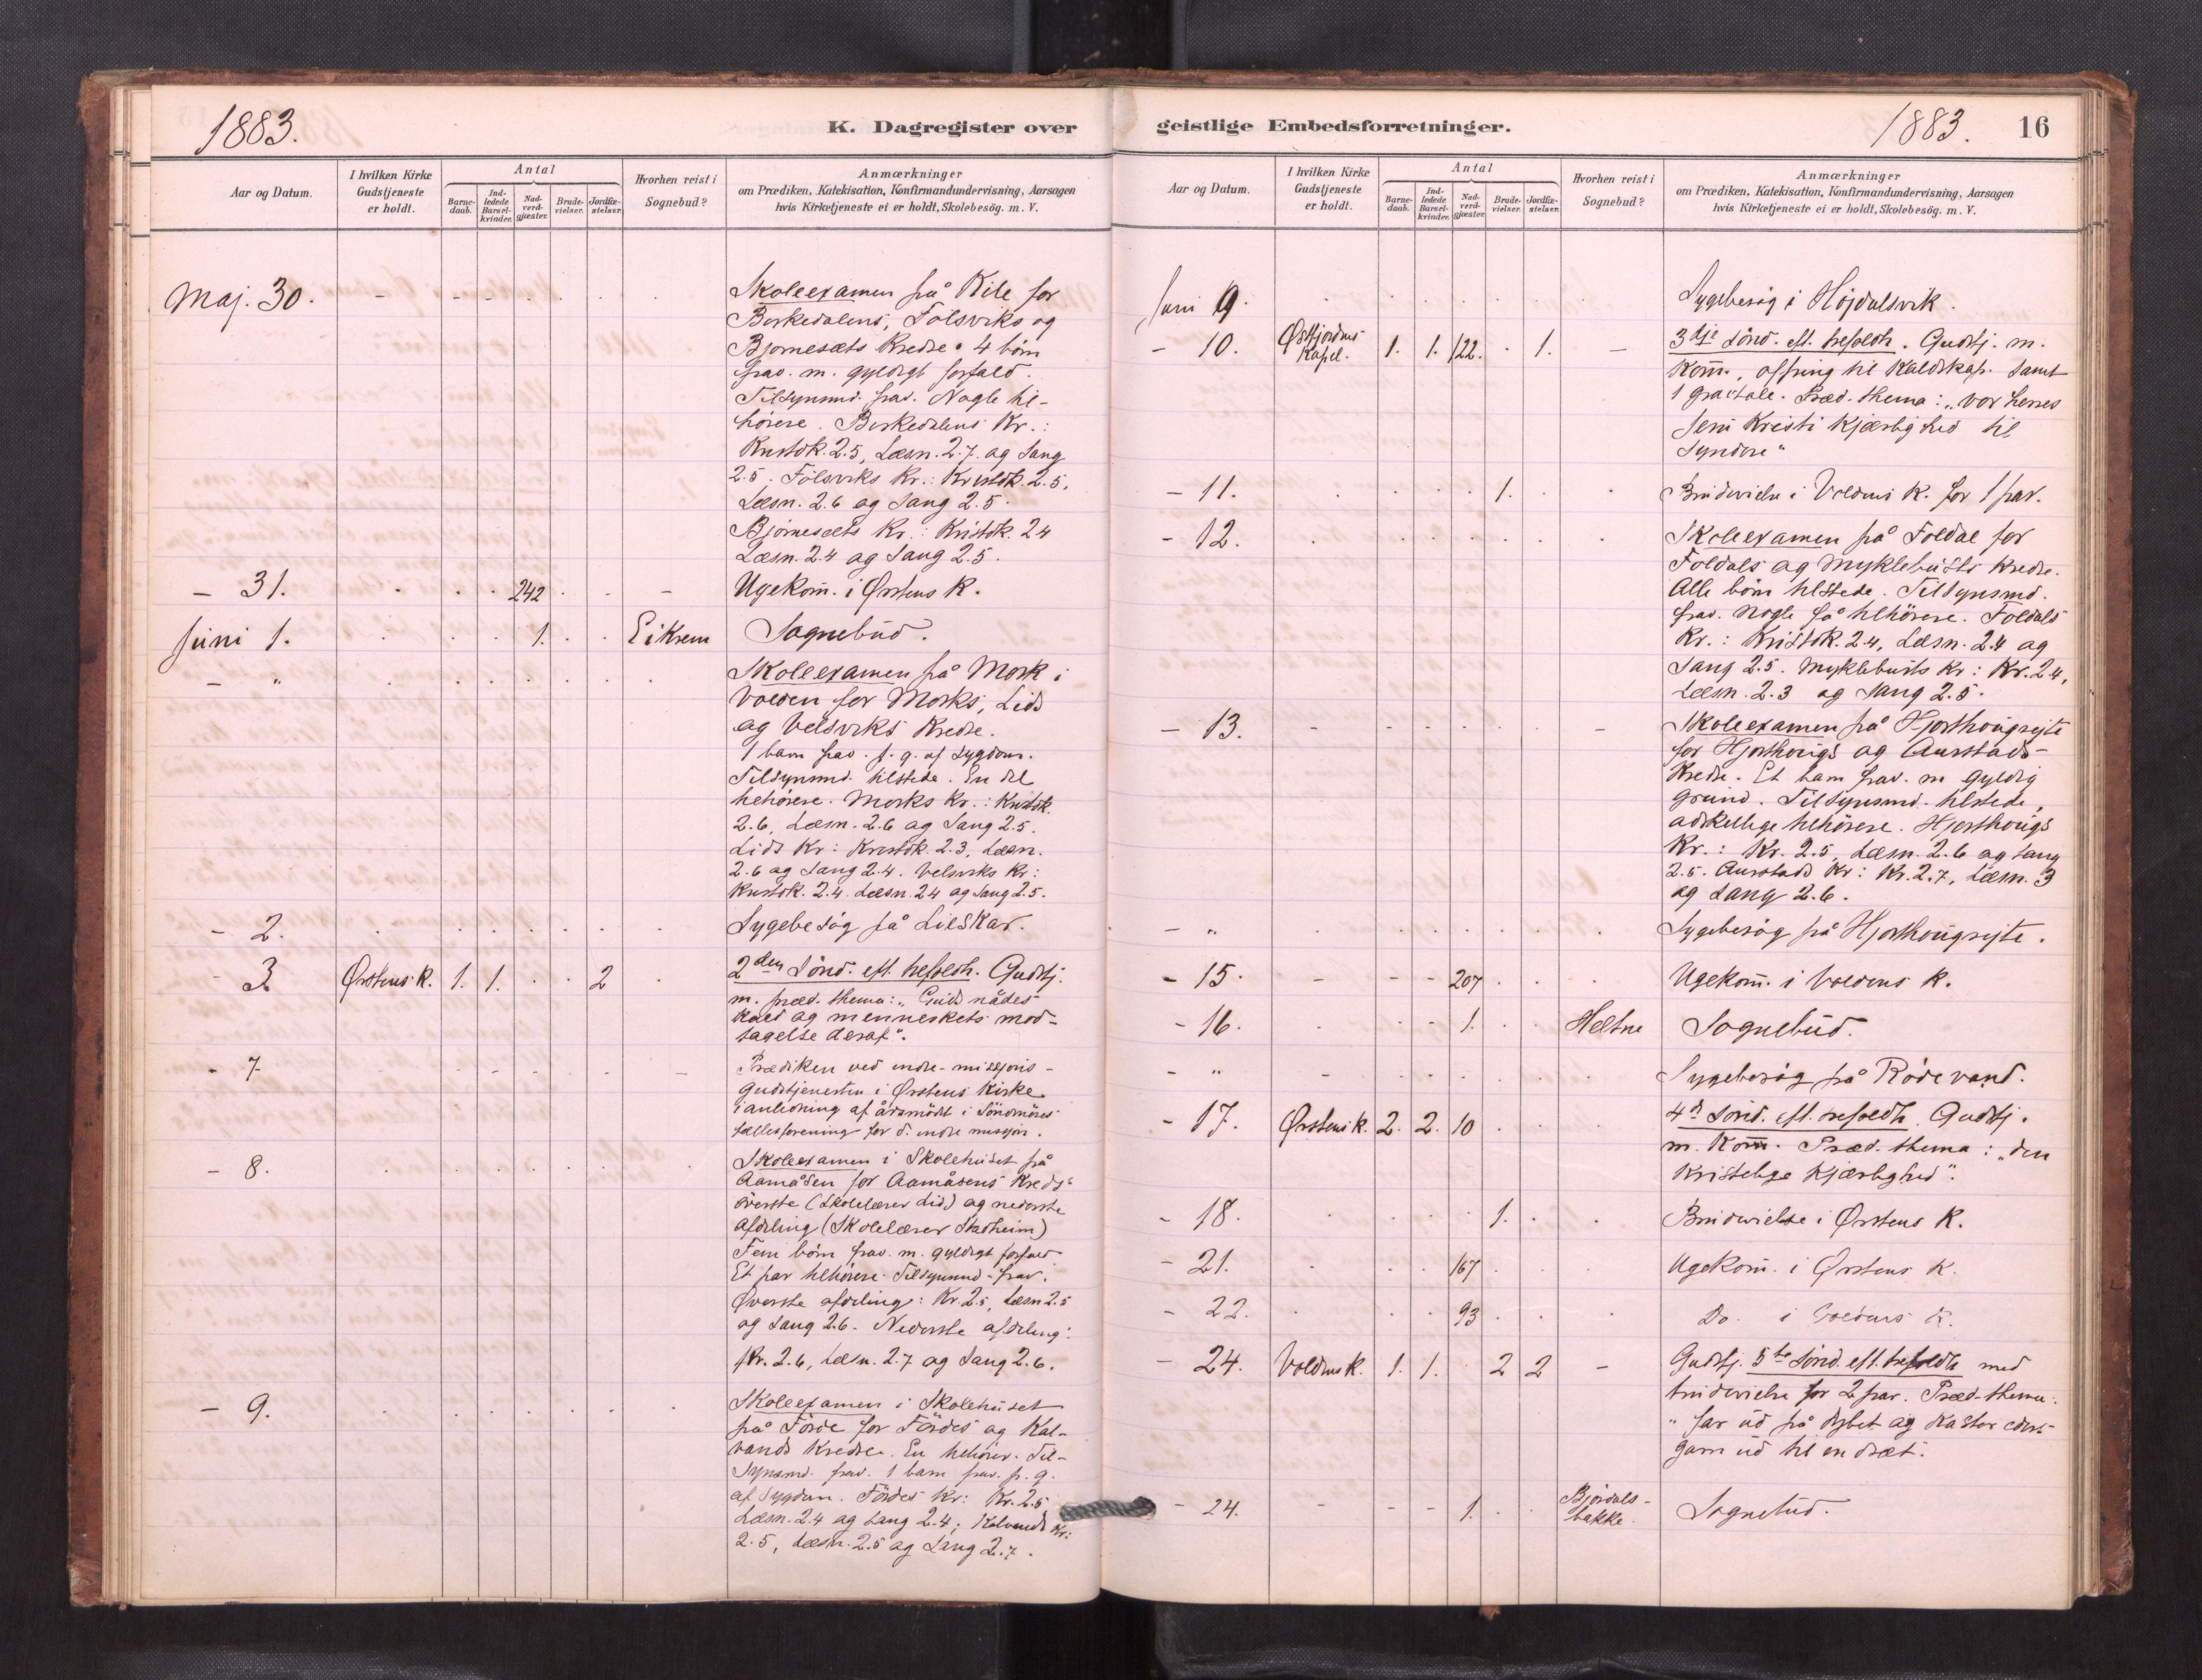 1883.
K. Dagregister over
Aar og Datum.
I hvilken Kirke
Gudstjeneste
er holdt.
Antal
Barne-
daab.
Ind-
ledede
Barsel-
kvinder.
Nad-
verd-
gjæster.
Brude-
vielser.
Jordfæ-
stelser.
Hvorhen reist i
Sognebud?
Anmærkninger
om Prædiken, Katekisation, Konfirmandundervisning, Aarsagen
hvis Kirketjeneste ei er holdt, Skolebesøg. m. V.
Maj. 30. Skoleexamen på Kile for
Berkedalens, Folsviks og
Bjørnesæts Kredse. 4 börn
frav. m. gyldigt forfald.
Tilsynsmd. frav. Nogle til-
hörere. Berkedalens Kr.:
Kristdk. 2.5, Læsn. 2.7. og Sang
2.5. Fölsviks Kr.: Kristdk. 2.5,
Læsn. 2.6 og Sang 2.5.
Bjørnesæts Kr.: Kristdk. 2.4
Læsn. 2.4 og Sang 2.5.
- 31. 242 Ugekom̄. i Ørstens K.
Juni 1. 1. Eikrem Sognebud.
- " Skoleexamen på Mork i
Volden for Morks, Lids
og Velsviks Kredse.
1 barn frav. p. g. af Sygdom.
Tilsynsmd. tilstede. En del
tilhörere. Morks Kr.: Kristdk.
2.6, Læsn. 2.6 og Sang 2.5.
Lids Kr: Kristdk. 2.3, Læsn.
2.6 og Sang 2.4. Velsviks Kr:
Kristdk. 2.4. Læsn. 2.4 og Sang 2.5.
- 2. Sygebesög på Lilskar.
- 3. Ørstens K. 1. 1. 2 2den Sönd. eft. trefoldh. Gudstj.
m. præd. thema: "Guds nådes
kald og menneskets mod-
tagelse deraf".
- 7 Prædiken ved indre-missions-
Gudstjenesten i Ørstens Kirke
i anledning af årsmödet i Söndmöres
fællesforening for d. indre mission.
- 8. Skoleexamen i Skolehuset på
Aamåsen for Aamåsens Kreds'
överste (Skolelærer Lid) og nederste
Afdeling (Skolelærer Stadheim)
Fem börn frav. m. gyldigt forfald
Et par tilhörere. Tilsynsmd. frav.
Øverste afdeling: Kr. 2.5, Læsn 2.5
og Sang 2.6. Nederste afdeling:
Kr. 2.6, Læsn. 2.7 og Sang 2.6.
- 9. Skoleexamen i Skolehuset
på Förde for Fördes og Kal-
vands Kredse. En tilhörer. Til-
synsmd. frav. 1 barn frav. p. g.
af Sygdom. Fördes Kr: Kr. 2.5
Læsn. 2.4 og Sang 2.4; Kalvands Kr:
2.5, Læsn. 2.5 og Sang 2.7.
geistlige Embedsforretninger.
1883. 16
Aar og Datum.
I hvilken Kirke
Gudstjeneste
er holdt.
Antal
Barne-
daab.
Ind-
ledede
Barsel-
kvinder.
Nad-
verd-
gjæster.
Brude-
vielser.
Jordfæ-
stelser.
Hvorhen reist i
Sognebud?
Anmærkninger
om Prædiken, Katekisation, Konfirmandundervisning, Aarsagen
hvis Kirketjeneste ei er holdt, Skolebesøg. m. V.
Juni 9. Sygebesög i Höjdalsvik.
- 10. Østfjordens Kapel. 1. 1. 122. 1. 3dje Sönd. eft. trefoldh. Gudstj. m.
Kom̄., offring til Kaldskap. samt
1 gravtale. Præd. thema: "Vor herres
Jesu Kristi Kjærlighed til
Syndere"
- 11. 1. Brudevielse i Voldens K. for 1 par.
- 12. Skoleexamen på Foldal for
Foldals og Myklebusts Kredse.
Alle börn tilstede. Tilsynsmd.
frav. Nogle få tilhörere. Foldals
Kr.: Kristdk. 2.4, Læsn. 2.4 og
Sang 2.5. Myklebusts Kr: Kr. 2.4,
Læsn. 2.3 og Sang 2.5.
- 13. Skoleexamen på Hjorthougsejte
for Hjorthougs og Aurstads-
Kredse. Et barn frav. m gyldig
grund. Tilsynsmd. tilstede,
adskillige tilhörere. Hjorthougs
Kr.: Kr. 2.5, Læsn. 2.6 og Sang
2.5. Aurstads Kr: Kr. 2.7, Læsn. 3
og Sang 2.6.
- " Sygebesög på Hjorthougsejte.
- 15. 207 Ugekom̄. i Voldens K.
- 16. 1. Heltne Sognebud.
- " Sygebesög på Rödevand.
- 17. Ørstens K. 2. 2. 10 4d Sönd. eft. trefoldh. Gudstj.
m. Kom̄. Præd. thema: "den
Kristelige Kjærlighed".
- 18. 1. Brudevielse i Ørstens K.
- 21. 167 Ugekom̄. i Ørstens K.
- 22. 93 Do. i Voldens K.
- 24. Voldens K. 1. 1. 2 2 Gudstj. 5te Sönd. eft. trefoldh med
brudevielse for 2 par. Præd-thema:
"far ud på dybet og Kaster eders
garn ud til en dræt".
- 24. 1. Björdals-
bakke Sognebud.